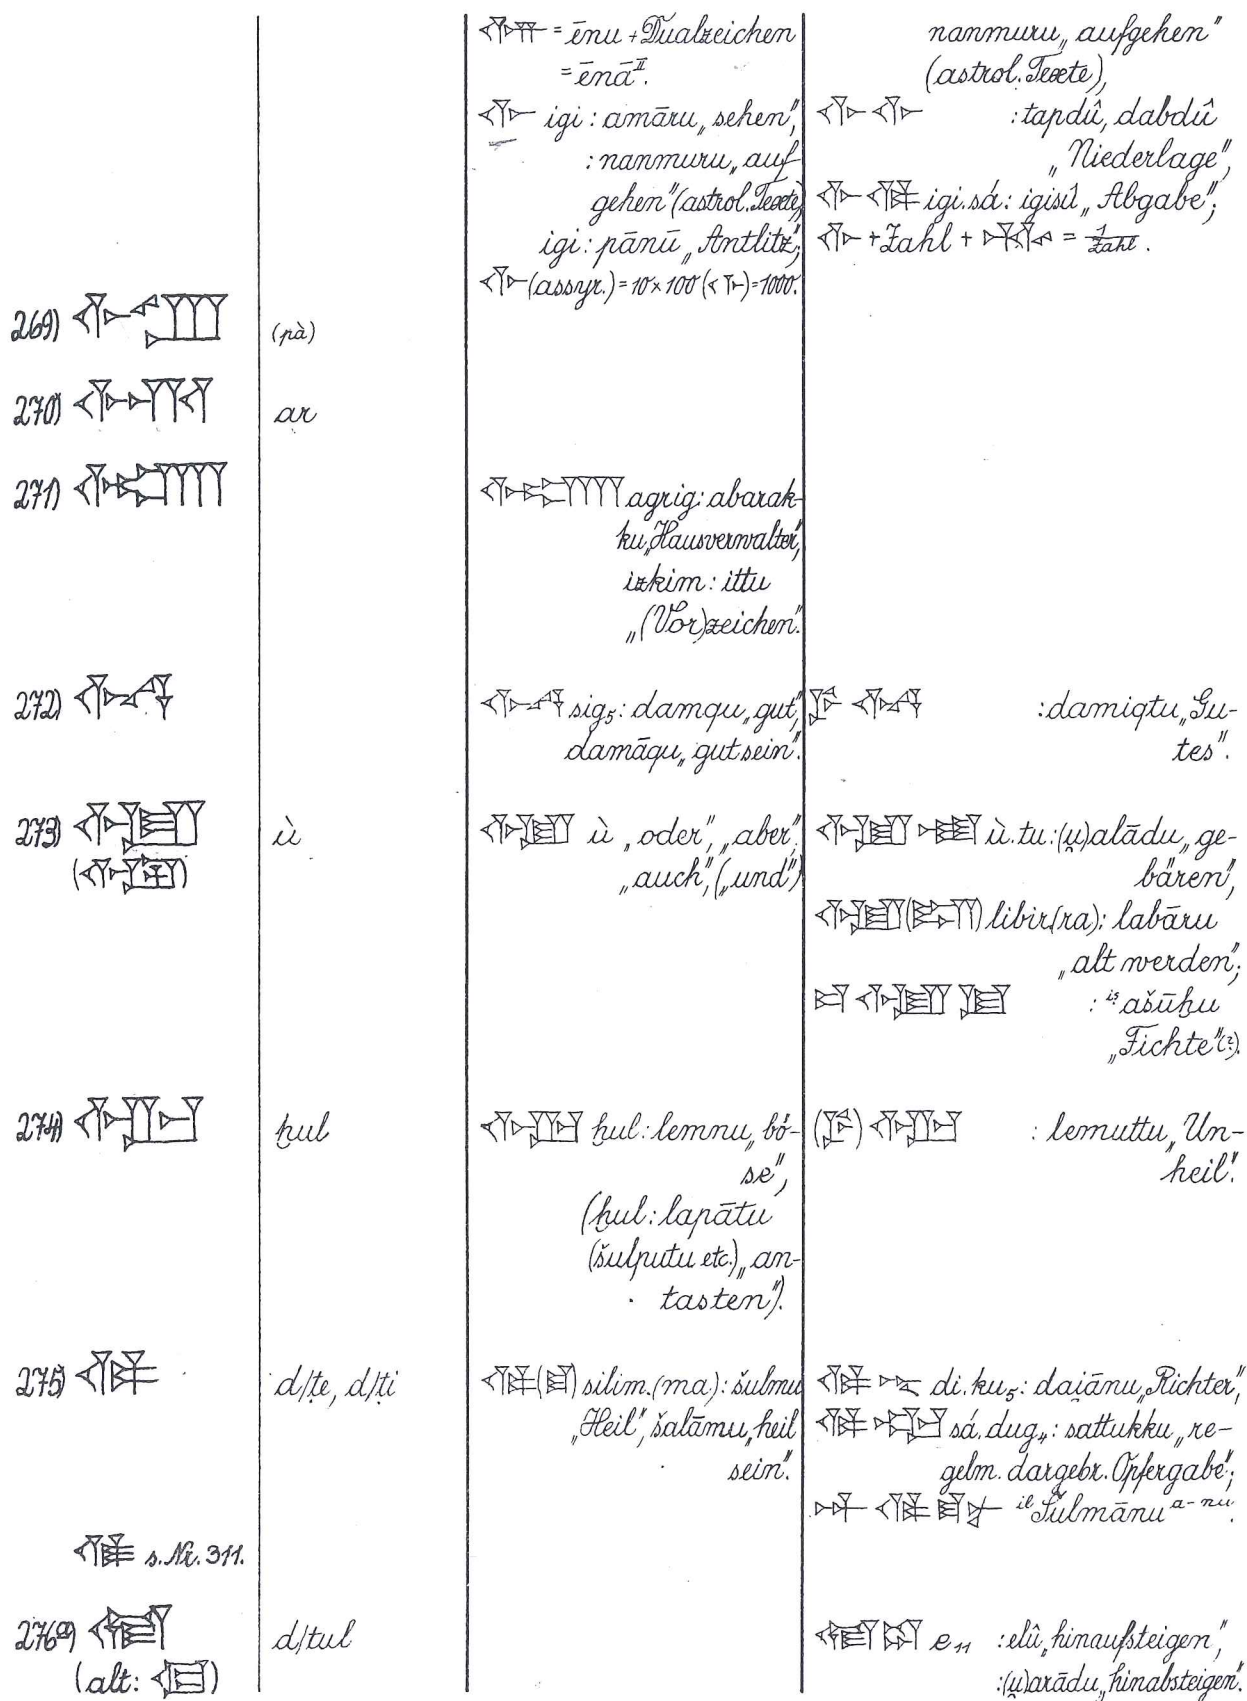 𒅆 = ēnu + Dualzeichen
= ēnāᴵᴵ.
𒅆 igi : amāru „sehen",
: nanmuru „auf
gehen" (astrol. Texte)
igi : pānū „Antlitz";
𒅆 (assyr.) = 10 × 100 = 1000.
nanmuru „aufgehen"
(astrol. Texte),
𒅆 𒅆 : tapdû, dabdû
„Niederlage",
𒅆 𒁲 igi.sá : igisû „Abgabe";
𒅆 + Zahl + = 1/Zahl.
269)
(pà)
270) 𒅈
ar
271)
agrig: abarak-
ku „Hausverwalter",
izkim : ittu
„(Vor)zeichen".
272)
sig₅ : damqu „gut",
damāqu „gut sein".
: damiqtu „Gu-
tes".
273) 𒅇
ù
𒅇 ù „oder", „aber",
„auch", („und")
𒅇 𒌅 ù.tu : (u̯)alādu „ge-
bären",
libir(ra) : labāru
„alt werden";
: ⁱṣ ašūḫu
„Fichte" (?).
274)
ḫul
ḫul : lemnu „bö-
se",
(ḫul : lapātu
(šulputu etc.) „an-
tasten").
: lemuttu „Un-
heil".
275) 𒁲
d/ṭe, d/ṭi
𒁲 (𒈠) silim.(ma) : šulmu
„Heil", šalāmu „heil
sein".
𒁲 𒋻 di.ku₅ : dai̯ānu „Richter",
𒁲 sá.dug₄ : sattukku „re-
gelm. dargebr. Opfergabe";
𒀭 𒁲 𒈠 𒉡 ⁱˡŠulmānu ᵃ⁻ⁿᵘ.
s. Nr. 311.
276a)
(alt: )
d/tul
e₁₁ : elû „hinaufsteigen",
: (u̯)arādu „hinabsteigen".